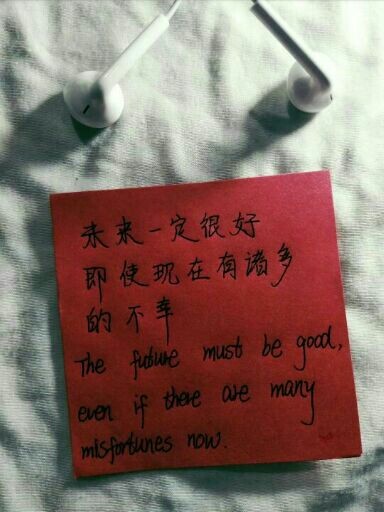 未来一定很好
即使现在有诸多
的不幸
The future must be good,
even if there are many
misfortunes now.